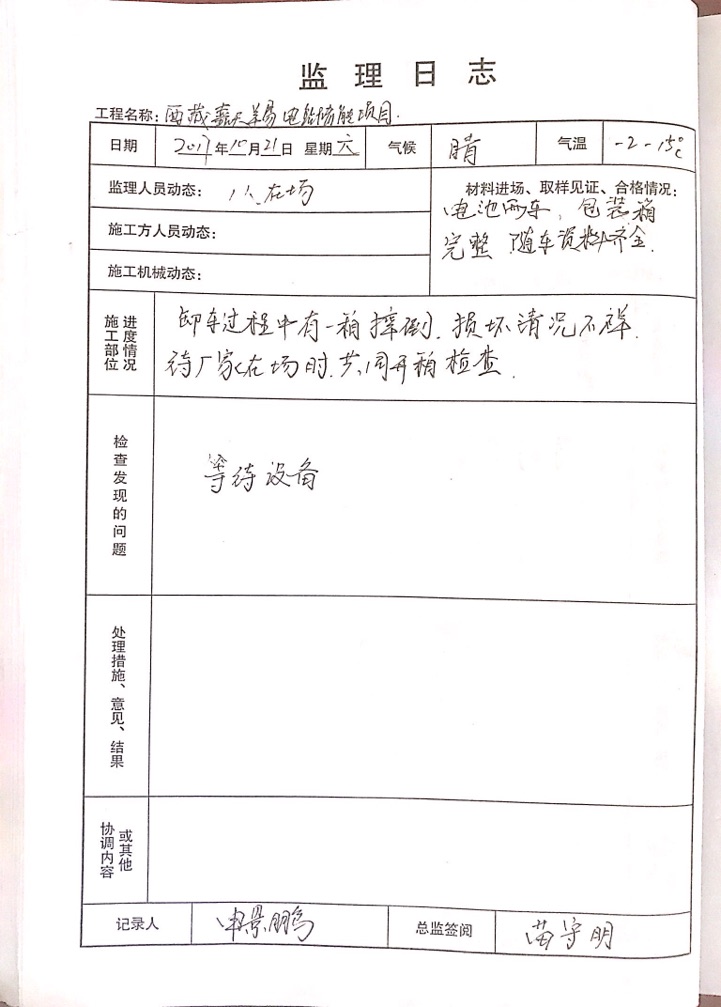 监理日志
工程名称：西藏嘉天羊易电站储能项目.
日期 2017年10月21日 星期六 气候 晴 气温 -2-15℃
监理人员动态： 1人在场
材料进场、取样见证、合格情况：
电池两车，包装箱
完整 随车资料齐全.
施工方人员动态：
施工机械动态：
进度情况
施工部位
卸车过程中有一箱摔倒. 损坏情况不详.
待厂家在场时.共同开箱检查.
检查发现的问题
等待设备
处理措施、意见、结果
或其他
协调内容
记录人 申景鹏 总监签阅 苗守明